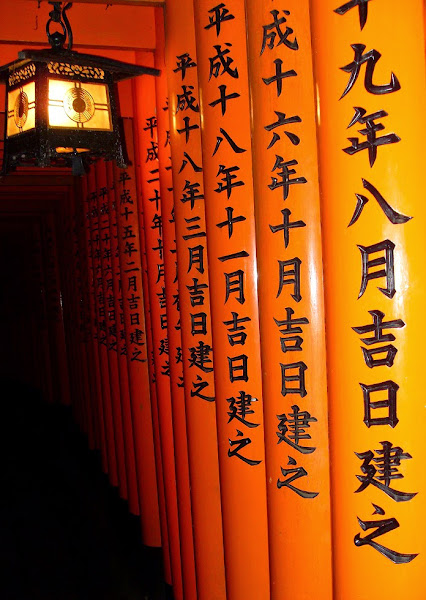 十九年八月吉日建之
成十六年十月吉日建之
平成十八年十一月吉日建之
平成十八年三月吉日建之
平成二十年十月吉日建之
平成十五年二月吉日建之